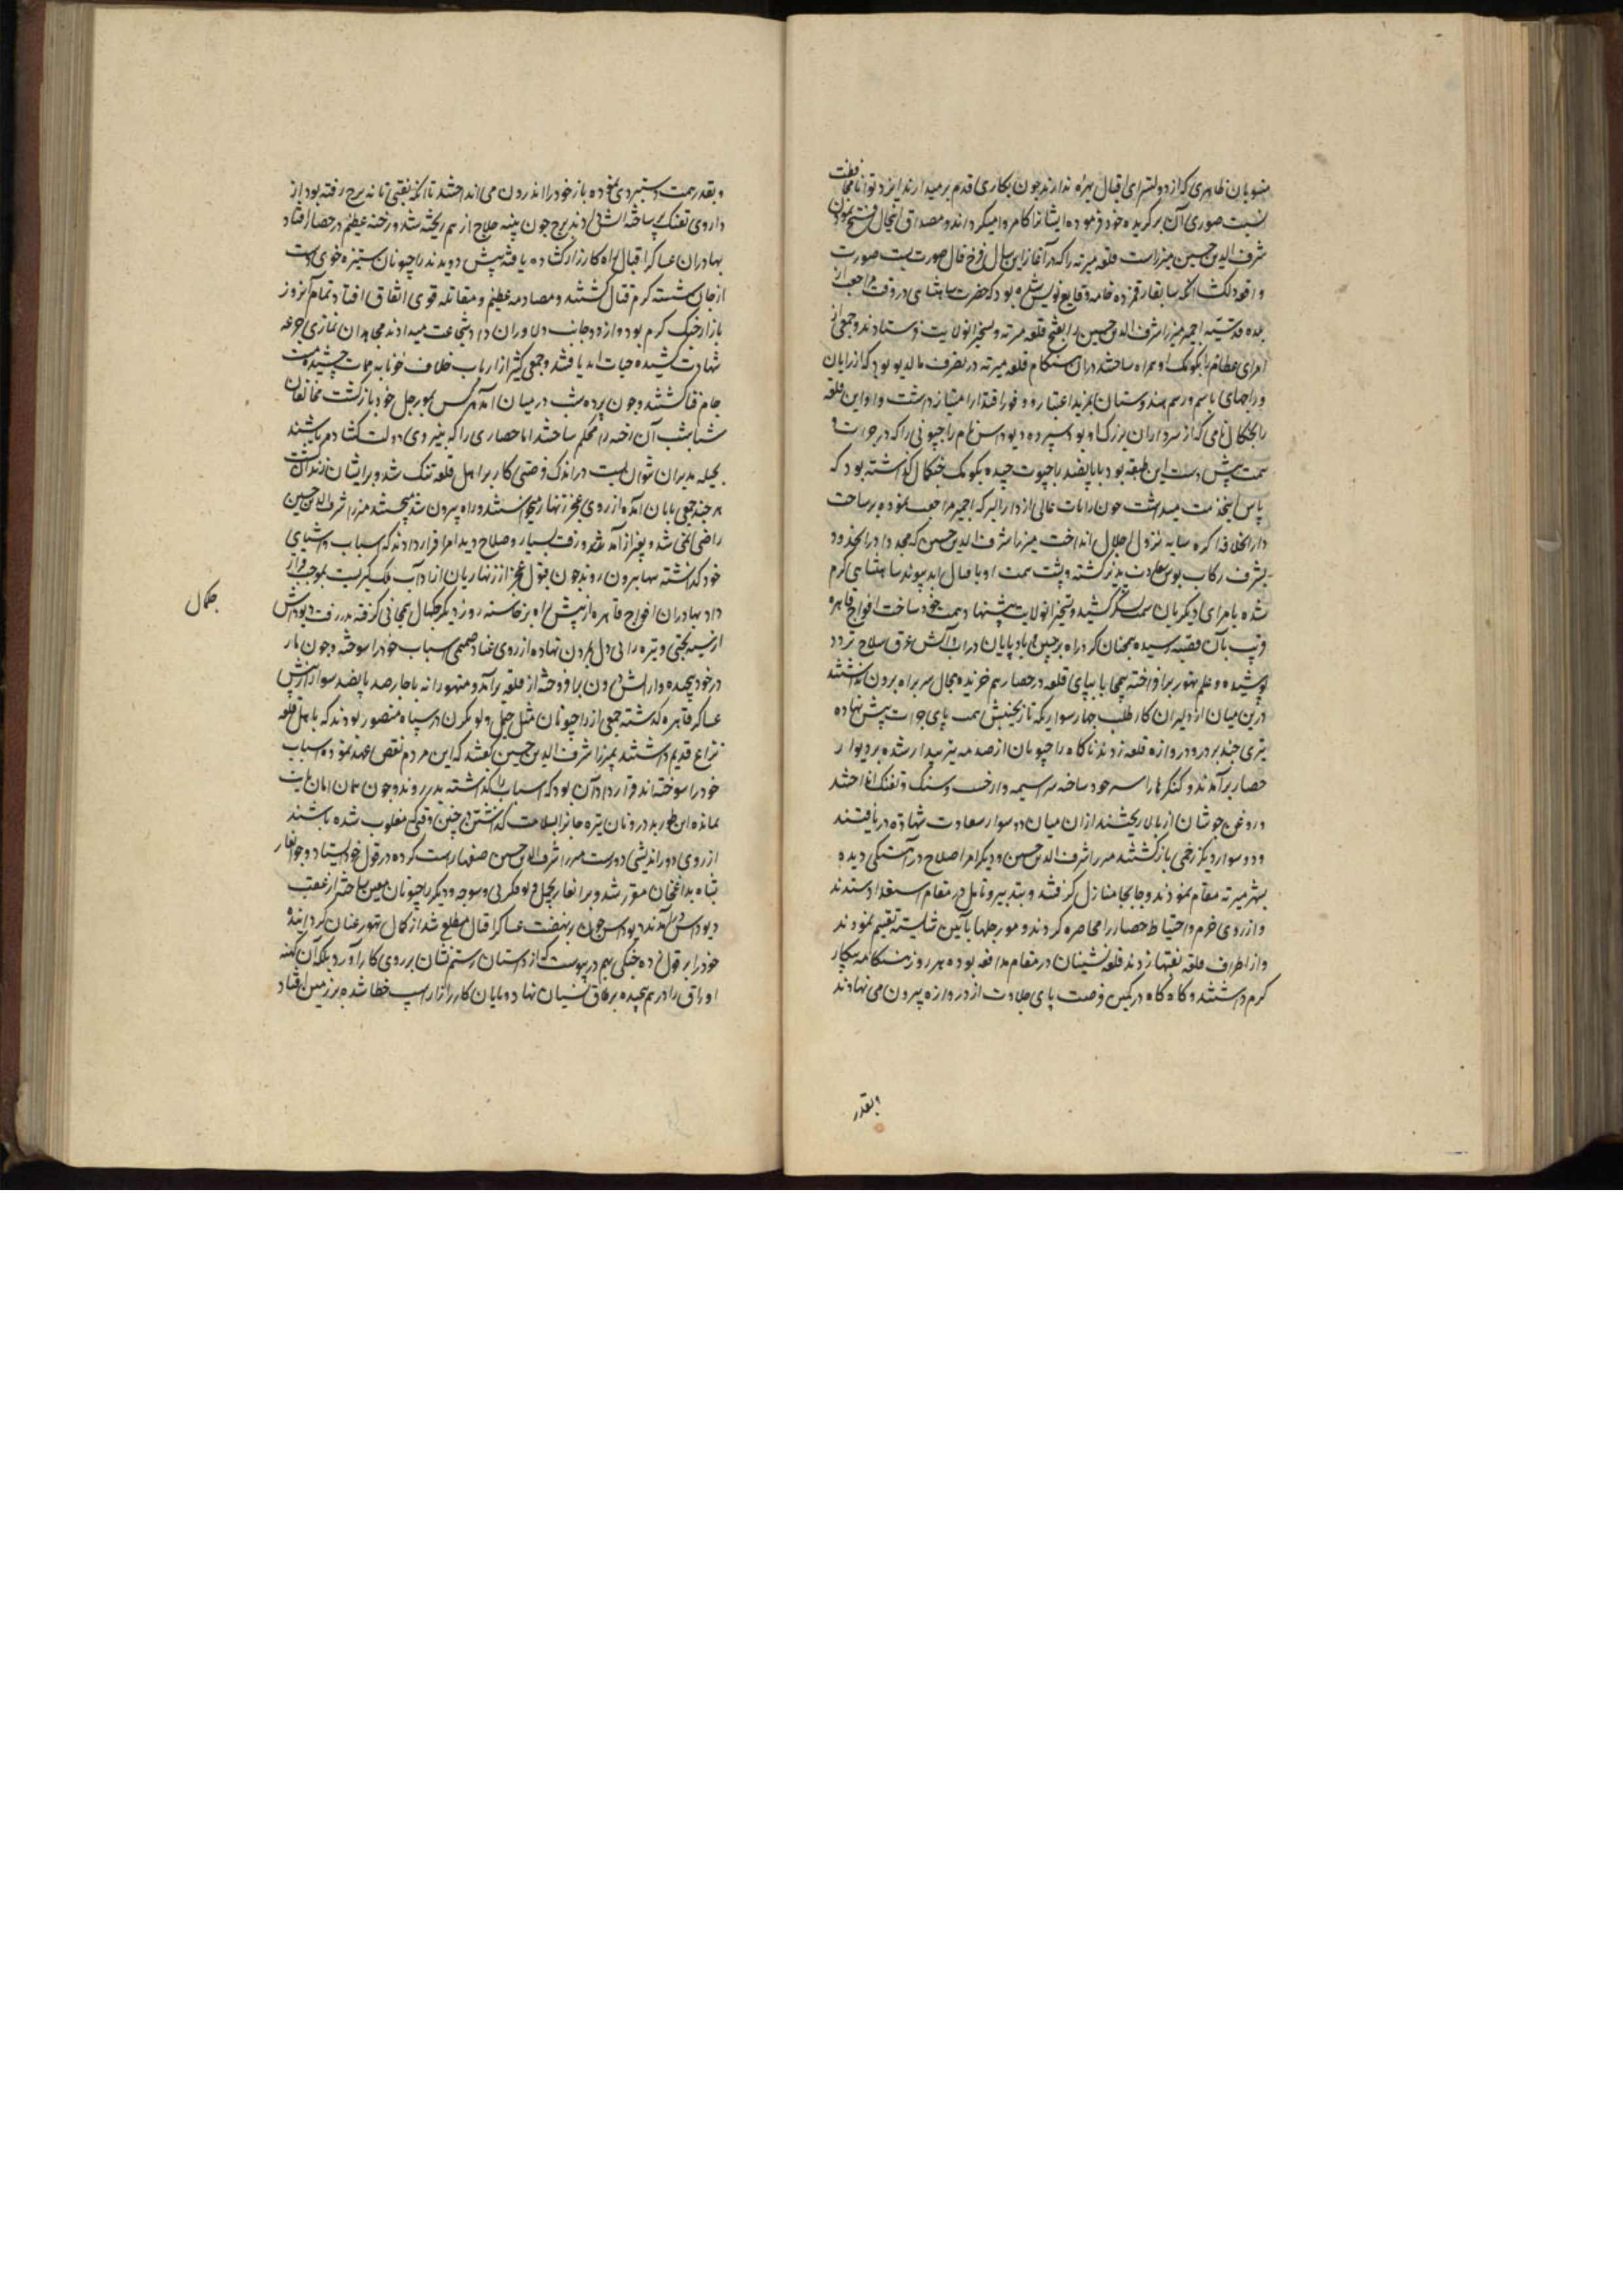 منسوبان ظاهری که از دولتسرای اقبال بهره ندارند چون بکاری قدم بر میدارند ایزد توانا بمحافظت
نسبت صوری آن برگزیده خود فرموده ایشانرا کامروا میگرداند و مصداق اینحال فتح نمودن
شرف الدین حسین میرزاست قلعه میرته را که در آغاز این سال فرخ فال صورت بست صورت
واقعه دلکشا آنکه سابقا رقمزده خامه وقایع نویس شده بود که حضرت شاهنشاهی در وقت مراجعت از
بلده قدسیه اجمیر میرزا شرف الدین حسین را بفتح قلعه میرته و تسخیر انولایت فرستادند و جمعی از
امرای عظام را بکومک او همراه ساختند در ان هنگام قلعه میرته در تصرف مالدیو بود که از رایان
و راجهای باسم و رسم هندوستان بمزید اعتبار و وفور اقتدار امتیاز داشت و او این قلعه
را بجگمال نامی که از سرداران بزرگ او بود سپرده و دیوداس نام راجپوتی را که در جرات و
همت پیش دست این طبقه بود با پانصد راجپوت چیده بکومک جگمال گذاشته بود که
پاس اینخدمت میداشت چون رایات عالی از دارالبرکه اجمیر مراجعت نموده بر ساحت
دار الخلافه اگره سایه نزول اجلال انداخت میرزا شرف الدین حسین که مجددا در انحدود
بشرف رکاب بوس سعادت پذیر گشته و پشت همت او باقبال ابد پیوند شاهنشاهی گرم
شده بامرای دیگر بان سمت لشکر کشید و تسخیر انولایت پیشنهاد همت خود ساخت افواج قاهره
قریب بآن قصبه رسیده همچنان گرد راه بر جبین و باد پایان در اب و آتش عرق سلاح تردد
پوشیده و علم تهور بر افراخته بیمحابا بپای قلعه در حصار هم خزیده مجال سر براه برون نداشتند
درین میان از دلیران کار طلب چهار سوار یکه تاز بجنبش همت پای جرات پیش نهاده
تیری چند بر در و دروازه قلعه زدند ناگاه راجپوتان از صدمه تیر بیدار شده بر دیوار
حصار برآمدند و کنگرها را سپر خود ساخته سراسیمه وار خشت و سنگ و تفنگ انداختند
و روغن جوشان از بالا ریختند از ان میان دو سوار سعادت شهادت دریافتند
و دو سوار دیگر زخمی بازگشتند میرزا شرف الدین حسین و دیگر امرا صلاح در آهستگی دیده
بشهر میرته مقام نمودند و جابجا منازل گرفتند و بتدبیر و تامل در مقام استعداد ستدند
و از روی حزم و احتیاط حصار را محاصره کردند و مورچلها بآئین شایسته تقسیم نمودند
و از اطراف قلعه نقبها زدند قلعه نشینان در مقام مدافعه بوده هر روز هنگامه پیکار
گرم داشتند و گاه گاه در کمین فرصت پای جلادت از دروازه بیرون می نهادند
وبقدر
و بقدر همت دستبردی نموده باز خود را اندرون می انداختند تا آنکه نقبی تا ته برج رفته بود از
داروی تفنگ پر ساخته آتش دادند برج چون پنبه حلاج از هم ریخته شد و رخنه عظیم در حصار افتاد
بهادران عساکر اقبال راه کارزار گشاده یافته پیش دویدند راجپوتان ستیزه خوی دست
از جان شسته گرم قتال گشتند و مصادمه عظیم و مقاتله قوی اتفاق افتاد تمام آنروز
بازار جنگ گرم بود و از دو جانب دلاوران داد شجاعت میدادند مجاهدان غازی جرعه
شهادت کشیده حیات ابد یافتند و جمعی کثیر از ارباب خلاف خونابه ممات چشیده مست
جام فنا گشتند و چون پرده شب در میان آمد هرکس بمورچل خود بازگشت مخالفان
شباشب آن رخنه را محکم ساختند اما حصاری را که بنیروی دولت گشاده باشند
بحیله مدبران نتوان بست در اندک فرصتی کار بر اهل قلعه تنگ شد و بر ایشان
هر چند جمعی بامان آمده از روی عجز زنهار میخواستند و راه بیرون شد میجستند میرزا شرف الدین حسین
راضی نمی شد و بعد از آمد شد و رفت بسیار و صلاح دید امرا قرار دادند که اسباب و اشیای
خود گذاشته بیرون روند چون قبول عجز از زنهاریان از اداب ملک گیریست بموجب قرار
داد بهادران افواج قاهره از پیش راه برخاستند روز دیگر جگمال همانی گرفته بدر رفت دیوداس
از سیه بختی و تیره رائی دل بمردن نهاده از روی عناد صمیمی اسباب خود را سوخته و چون مار
در خود پیچیده و آتش درون بر افروخته از قلعه برآمد و متهورانه با چهارصد پانصد سوار از پیش
عساکر قاهره گذشته جمعی از راجپوتان مثل جیمل و لونکرن در سپاه منصور بودند که باهل قلعه
نزاع قدیم داشتند بمیرزا شرف الدین حسین گفتند که این مردم نقض عهد نموده اسباب
خود را سوخته اند و قرارداد آن بود که اسباب را گذاشته بدر روند و چون همان امان یافت
نمانده این طور بدرونان تیره جانرا بسلامت گذاشتن در چنین وقتی که مغلوب شده باشند
از روی دور اندیشی دورست میرزا شرف الدین حسین صفها راست کرده در قول خود ایستاد و جوانغار
بشاه بداغخان مقرر شد و برانغار بجیمل و لونکرن و سوجه و دیگر راجپوتان معین ساخته از عقب
دیوداس در آمدند دیوداس چون بر نهضت عساکر اقبال مطلع شد از کمال تهور عنان گردانیده
خود را بر قول زده جنگی بهم در پیوست که از داستان رستم نشان بر روی کار آورد بلکه آن کهنه
اوراق را در هم پیچیده بر طاق نسیان نهاد و پایان کار از اسپ خطا شده بر زمین افتاد
جگمال